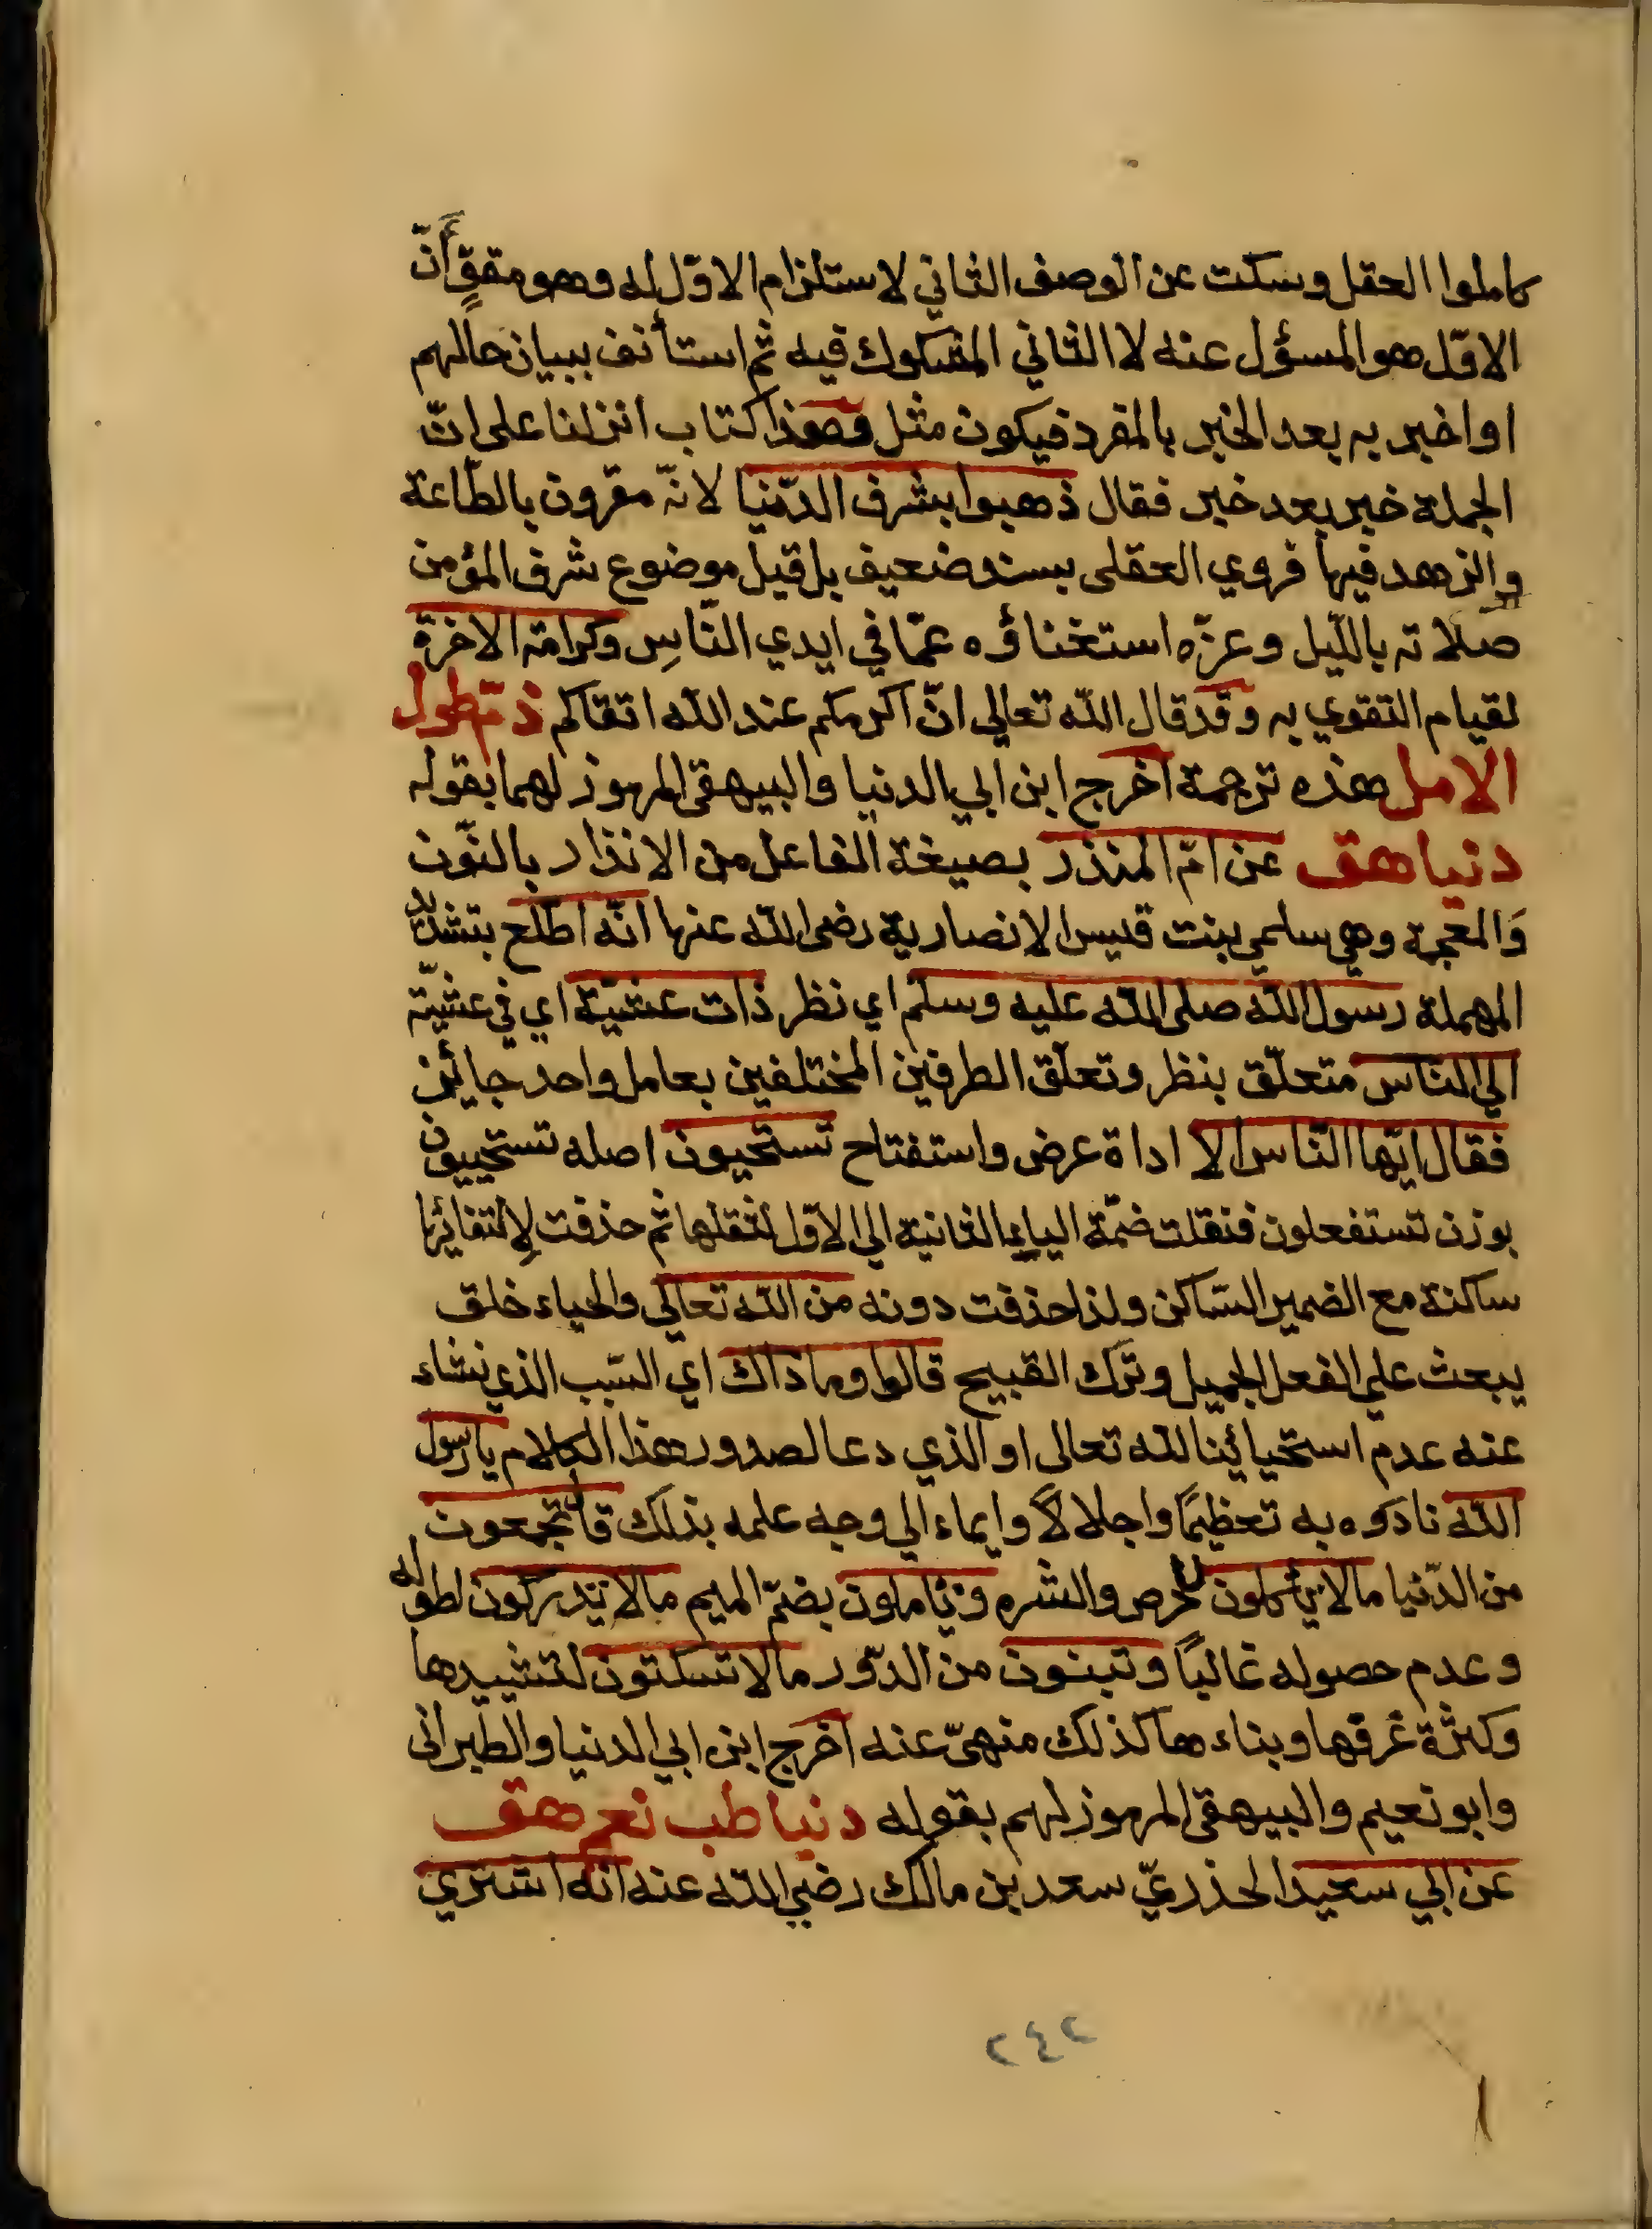 كاملوا العقل وسكت عن الوصف الثاني لاستلزام الاوّل له وهو مققٍ أنّ
الاوّل هو المسؤل عنه لا الثاني المشكوك فيه ثم استأنف ببيان حالهم
او اخبر به بعد الخبر بالمفرد فيكون مثل وهذا كتاب انزلنا على انّ
الجملة خبر بعد خبر فقال ذهبوا بشرف الدّنيا لانّه مقرون بالطّاعة
والزهد فيها فروي العقلى بسند ضعيف بل قيل موضوع شرف المؤمن
صلاته بالليل وعزّه استغناؤه عمّا في ايدي النّاسِ وكرامة الاخرة
لقيام التقوي به وقد قال اللّه تعالى انّ اكرمكم عند اللّه اتقاكم ذمّ طول
الامل هذه ترجمة اخرج ابن ابي الدنيا والبيهقى المرموز لهما بقوله
دنيا هق عن امّ المنذر بصيغة الفاعل من الانذار بالنّون
وَالمعجمة وهي سلمي بنت قيس الانصارية رضى اللّه عنها انّه اطّلع بتشديد
المهملة رسول اللّه صلى اللّه عليه وسلّم اي نظر ذات عشيّة اي في عشيّة
الي الناس متعلّق بنظر وتعلّق الطرفين المختلفين بعامل واحد جائز
فقال ايّها النّاس الا اداة عرض واستفتاح تستحيون اصله تستحييون
بوزن تستفعلون فنقلت ضمّة الياء الثانية الي الاوّل لثقلها ثم حذفت لالتقائها
ساكنة مع الضمير السّاكن ولذا حذفت دونه من اللّه تعالى والحياء خلق
يبعث علي الفعل الجميل وترك القبيح قالوا وما ذاك اي السّبب الذي نشاء
عنه عدم استحيائينا للّه تعالى او الذي دعا لصدور هذا الكلام يا رسول
اللّه نادَوه به تعظيمًا واجلالاً وايماء الي وجه علمه بذلك قال تجمعون
من الدّنيا ما لا تأكلون للحرص والشره وتاملون بضمّ الميم ما لا تدركون لطوله
وعدم حصوله غالبًا وتبنون من الدّور ما لا تسكنون لتشييدها
وكثرة غرفها وبناءها كذلك منهىّ عنه اخرج ابن ابي الدنيا والطبرانى
وابو نعيم والبيهقى المرموز لهم بقوله دنيا طب نعم هق
عن ابي سعيد الخذريّ سعد بن مالك رضي اللّه عنه انه اشتري
٢٤٢